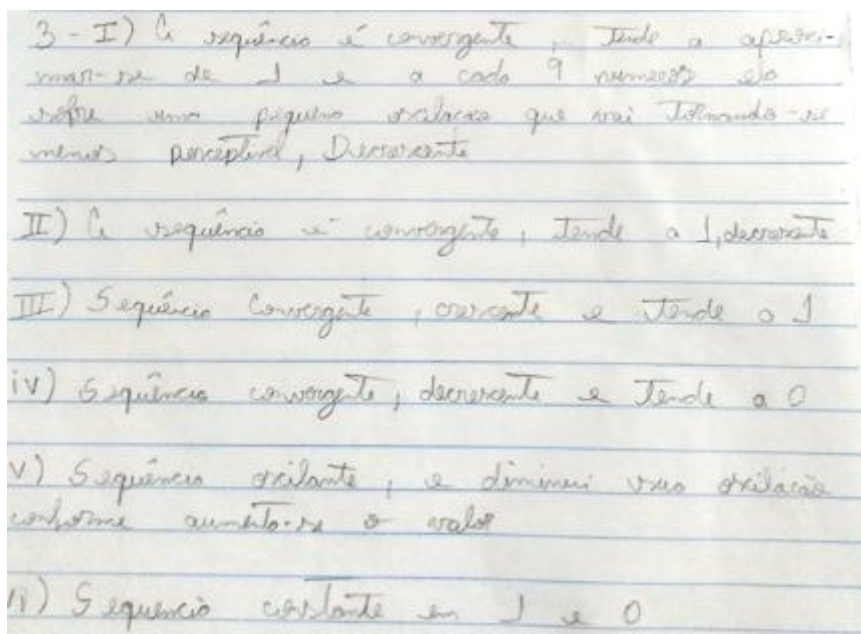 3 - I) A sequência é convergente, tende a aproxi-
mar-se de 1 e a cada 9 numeros ela
sofre uma pequena oscilacao que vai tornando-se
menos perceptivel, Decrescente
II) A sequência é convergente, tende a 1, decrescente
III) Sequência Convergente, crescente e tende a 1
iv) Sequência convergente, decrescente e tende a 0
v) Sequência oscilante, e diminui sua oscilação
conforme aumenta-se o valor
Sequencia constante em 1 e 0